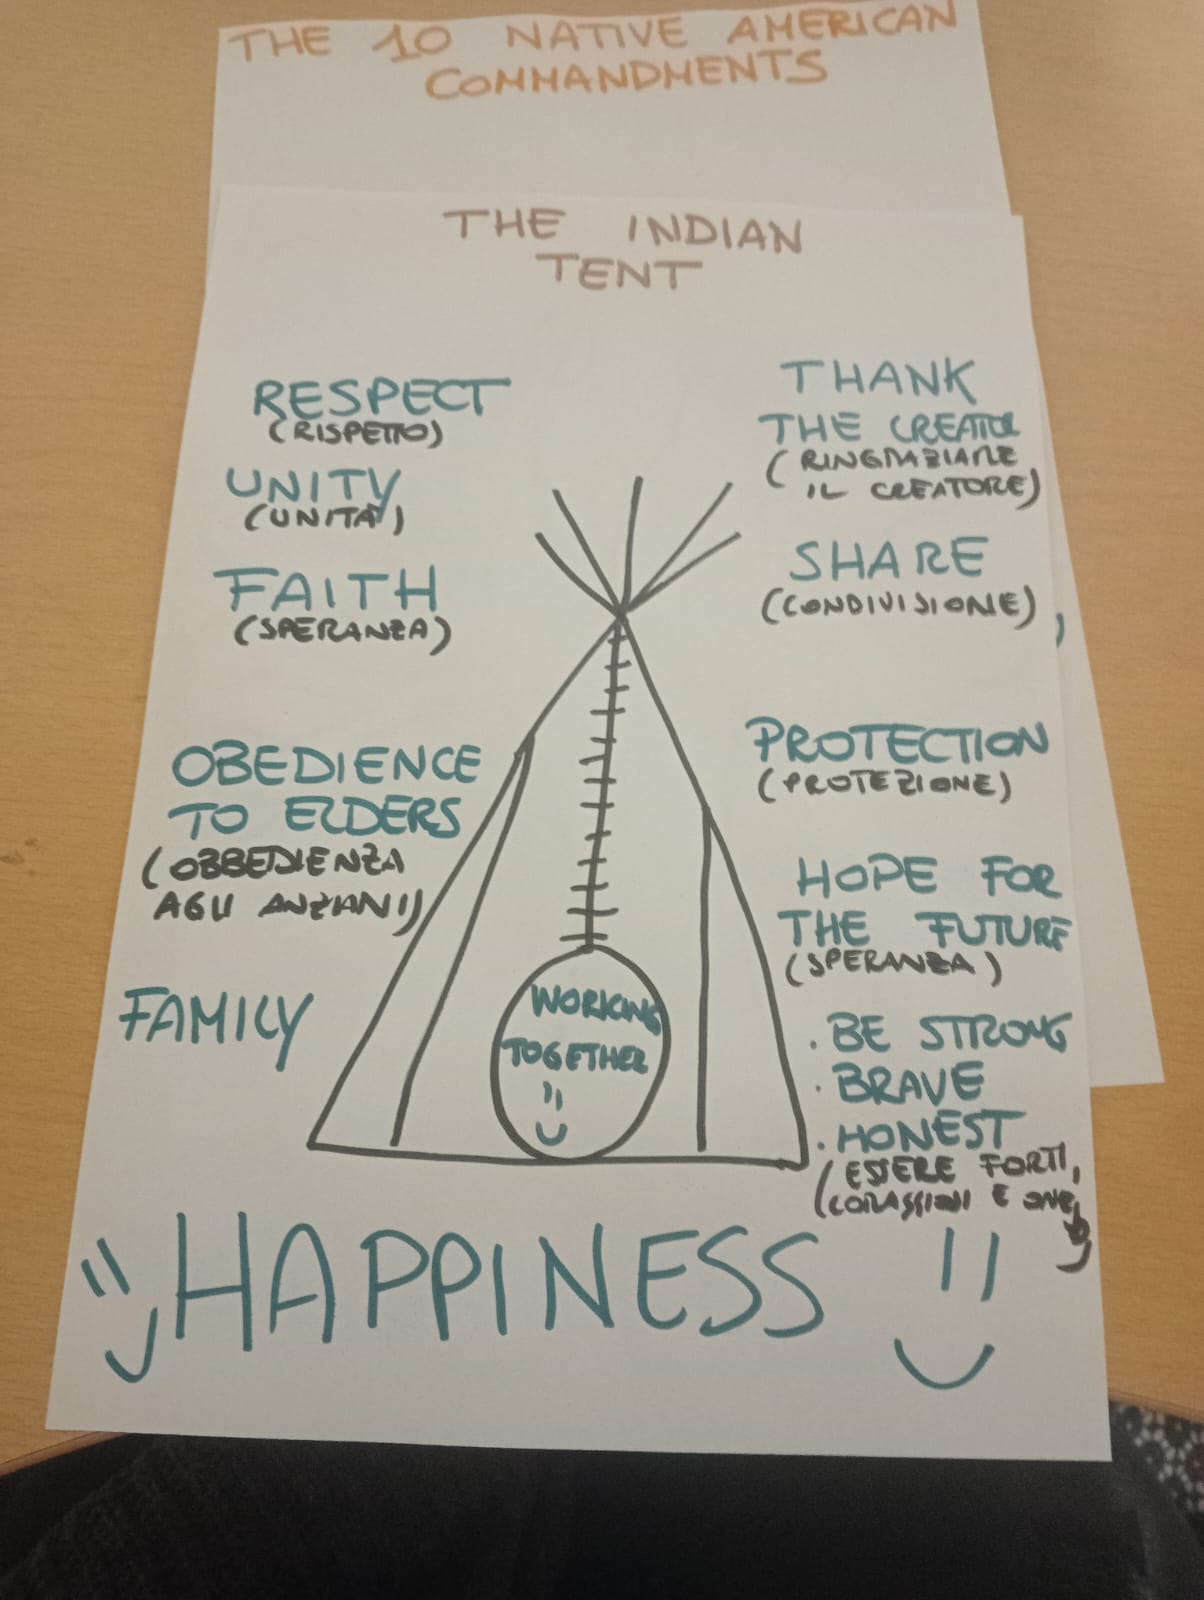 THE 10 NATIVE AMERICAN
COMMANDMENTS
THE INDIAN
TENT
RESPECT
(RISPETTO)
UNITY
(UNITÀ)
FAITH
(SPERANZA)
OBEDIENCE
TO ELDERS
(OBBEDIENZA
AGLI ANZIANI)
FAMILY
THANK
THE CREATOR
(RINGRAZIARE
IL CREATORE)
SHARE
(CONDIVISIONE)
PROTECTION
(PROTEZIONE)
HOPE FOR
THE FUTURE
(SPERANZA)
. BE STRONG
. BRAVE
. HONEST
(ESSERE FORTI,
E
WORKING
TOGETHER
HAPPINESS